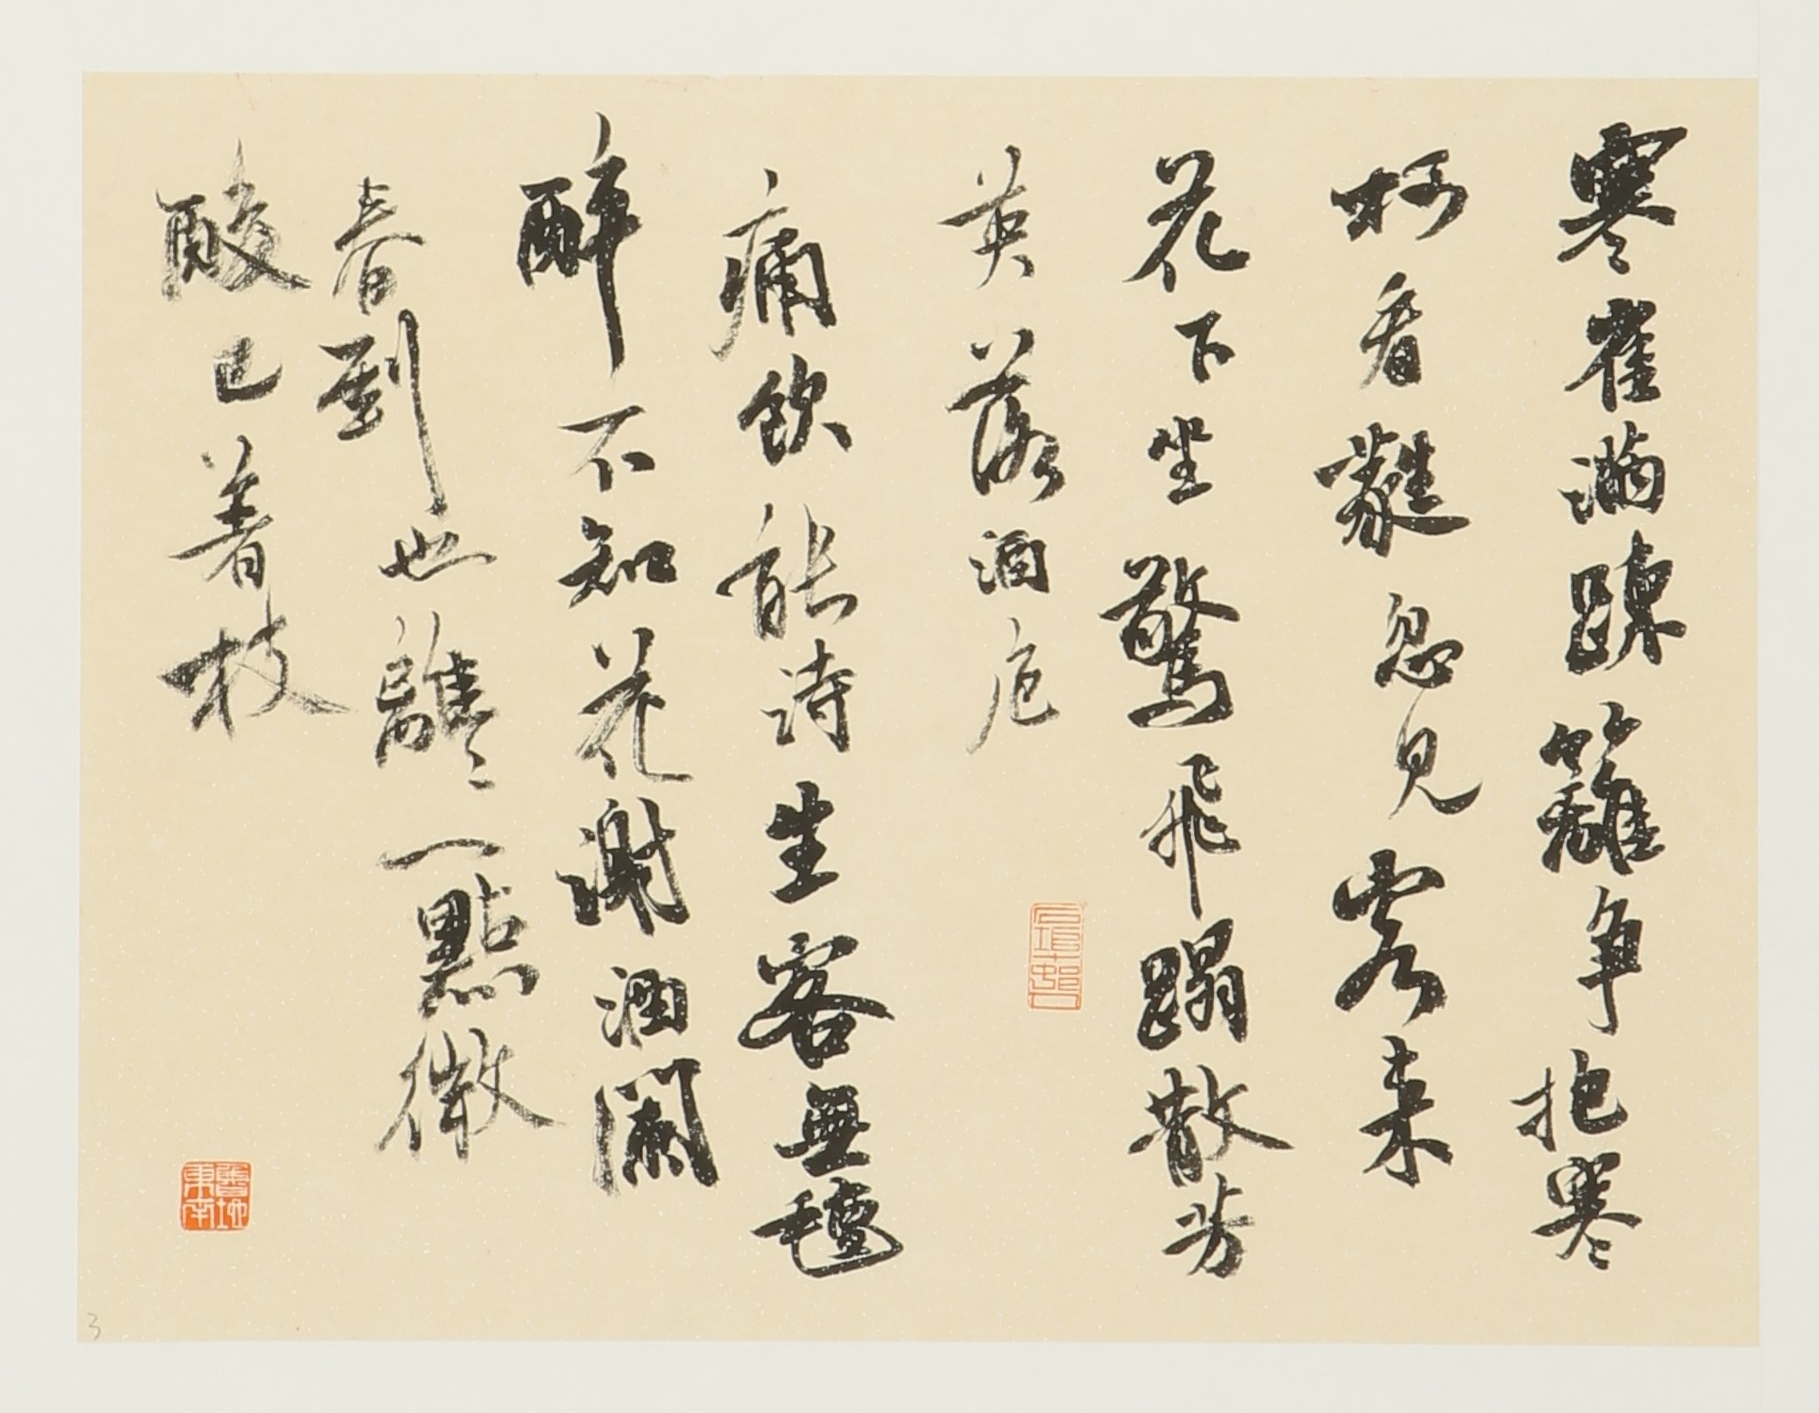 寒雀滿踈籬争抱寒
柯看蕤忽見客来
花下坐驚飛蹋散芳
英落酒卮
痛飲能詩生客無氈
醉不知花謝酒闌
春到也離〻一點微
酸已着枝
3